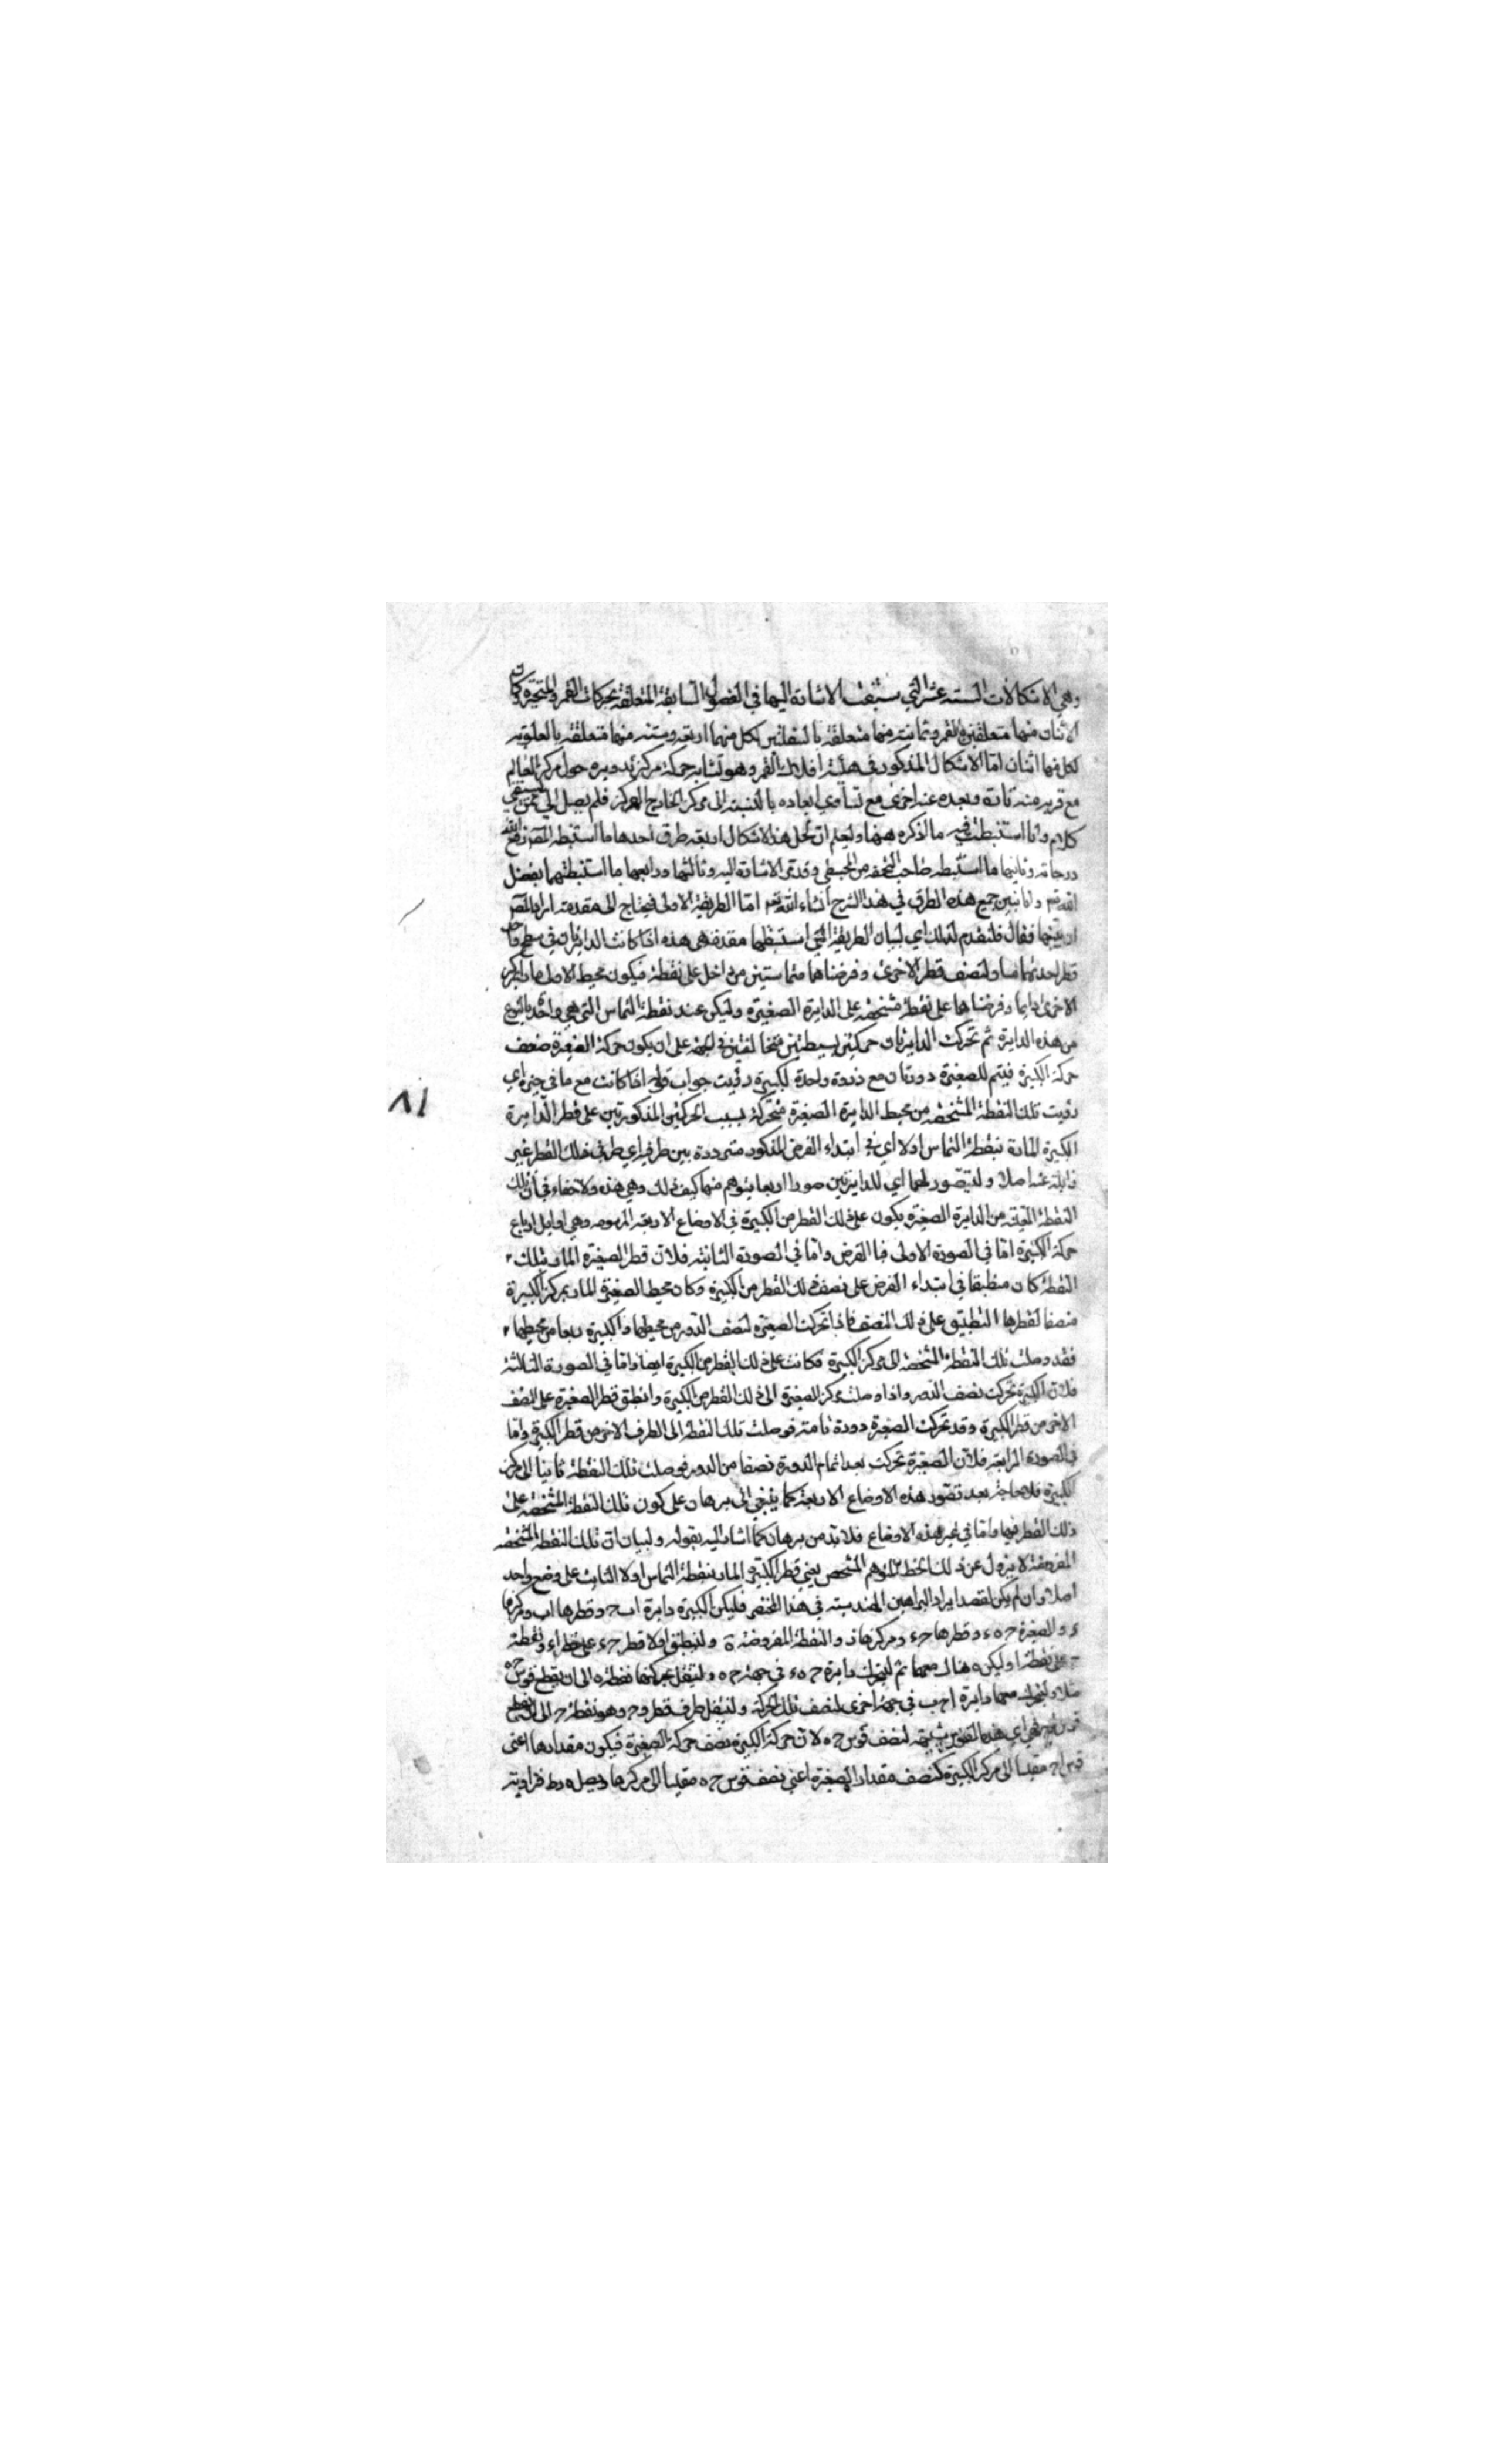 وهي الاشكالات الستة عشر التي سبقت الاشارة اليها في الفصول السابقة المتعلقة بحركات القمر والمتحيرة وكان
الاثنان منها متعلقين بالقمر وثمانية منها متعلقة بالسفليين لكل منهما اربعة وستة منها متعلقة بالعلوية
لكل منها اثنان اما الاشكال المذكور في هيئة افلاك القمر وهو تشابه حركة مركز تدويره حول مركز العالم
مع قربه منه تارة وبعده عنه اخرى مع تساوي ابعاده بالنسبة الى مركز الخارج المركز فلم يصل الي ممن سبقني
كلام وانا استنبطت فيه ما اذكره ههنا وليعلم ان لحل هذا الاشكال اربعة طرق احدها ما استنبطه المصر رفع الله
درجاته وثانيها ما استنبطه صاحب التحفة من المجسطي وقد مر الاشارة اليه وثالثها ورابعها ما استنبطتهما بفضل
الله تع وانا نبين جميع هذه الطرق في هذا الشرح انشاء الله تع اما الطريقة الاولى فيحتاج الى مقدمة اراد المصر
ان يبينها فقال فلنقدم لذلك اي لبيان الطريقة التي استنبطها مقدمة هي هذه اذا كانت الدايرتان في سطح واحد
قطر احدهما مساو لنصف قطر الاخرى وفرضناهما متماستين من داخل على نقطة فيكون محيط الاولى مارا بمركز
الاخرى دايما وفرضناها على نقطة مشخصة على الدايرة الصغيرة ولتكن عند نقطة التماس التي هي واحدة بالنوع
من هذه الدايرة ثم تحركت الدايرتان حركتين بسيطتين متخالفتين في الجهة على ان يكون حركة الصغيرة ضعف
حركة الكبيرة فيتم للصغيرة دورتان مع دورة واحدة لكبيرة رؤيت جواب قوله اذا كانت مع ما في حيزه اي
رؤيت تلك النقطة المشخصة من محيط الدايرة الصغيرة متحركة بسبب الحركتين المذكورتين على قطر الدايرة
الكبيرة المارة بنقطة التماس اولا اي في ابتداء الفرض المذكور مترددة بين طرفيه اي طرفي ذلك القطر غير
زايلة عنه اصلا ولنتصور لهما اي للدايرتين صورا اربعا يتوهم منها كيف ذلك وهي هذه ولا خفاء في ان تلك
النقطة المعينة من الدايرة الصغيرة يكون على ذلك القطر من الكبيرة في الاوضاع الاربعة المرسومة وهي اوايل ارباع
حركة الكبيرة اما في الصورة الاولى فبالفرض واما في الصورة الثانية فلان قطر الصغيرة المار بتلك
النقطة كان منطبقا في ابتداء الفرض على نصف ذلك القطر من الكبيرة وكان محيط الصغيرة المار بمركز الكبيرة
منصفا لقطرها المنطبق على ذلك النصف فاذا تحركت الصغيرة لنصف الدور من محيطها والكبيرة ربعا من محيطها
فقد وصلت تلك النقطة المشخصة الى مركز الكبيرة فكانت على ذلك القطر من الكبيرة ايضا واما في الصورة الثلاثة
فلان الكبيرة تحركت نصف الدور واذا وصلت مركز الصغيرة الى ذلك القطر من الكبيرة وانطبق قطر الصغيرة على النصف
الاخر من قطر الكبيرة وقد تحركت الصغيرة دورة تامة فوصلت تلك النقطة الى الطرف الاخر من قطر الكبيرة واما
في الصورة الرابعة فلان الصغيرة تحركت بعد اتمام الدورة نصفا من الدور فوصلت تلك النقطة ثانيا الى مركز
الكبيرة فلا حاجة بعد تصور هذه الاوضاع الاربعة كما ينبغي الى برهان على كون تلك النقطة المشخصة على
ذلك القطر فيها واما في غير هذه الاوضاع فلا بد من برهان كما اشار اليه بقوله ولبيان ان تلك النقطة المشخصة
المفروضة لا يزول عن ذلك الخط المتوهم المشخص يعني قطر الكبيرة المار بنقطة التماس اولا الثابت على وضع واحد
اصلا وان لم يكن لقصد ايراد البراهين الهندسية في هذا المختصر فليكن الكبيرة دايرة اب ح وقطرها اب ومركزها
ء والصغيرة ح ه ء وقطرها ح ء ومركزها ز والنقطة المفروضة ه ولينطبق اولا قطر ح ء على خط ا ء ونقطة
ح على نقطة ا وليكن ه هناك معهما ثم ليتحرك دايرة ح ه ء في جهة ح ه ولتنتقل بحركتها نقطة ه الى ان يقطع قوس ح ه
مثلا وليتحرك معها دايرة ا ح ب في جهة اخرى لنصف تلك الحركة ولينتقل طرف قطر ء ح وهو نقطة ح الى ان يقطع
قوس ا ح فهي اي هذه القوس شبيهة لنصف قوس ح ه لان حركة الكبيرة نصف حركة الصغيرة فيكون مقدارها اعني
قوس ا ح مقيسا الى مركز الكبيرة كنصف مقدار الصغيرة اعني نصف قوس ح ه مقيسا الى مركزها ونصل فزاوية